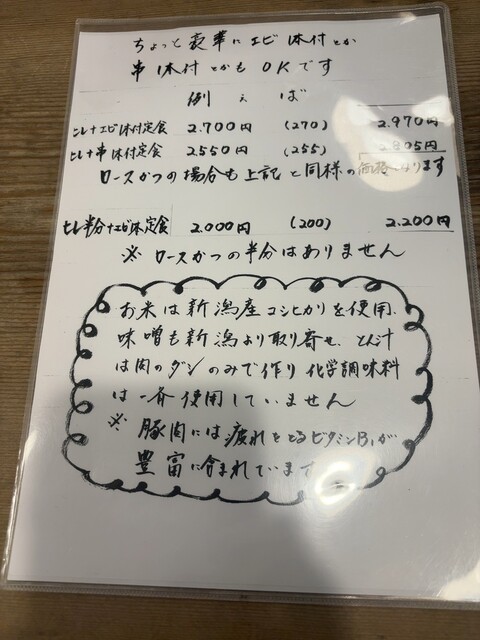 ちょっと豪華にエビ1本付とか
串1本付とかもOKです
例えば
ヒレ+エビ1本付定食 2.700円 (270) 2.970円
ヒレ+串1本付定食 2550円 (255) 2.805円
ロースかつの場合も上記と同様の価格になります
ヒレ半分+エビ1本定食 2.000円 (200) 2.200円
※ロースかつの半分はありません
お米は新潟産コシヒカリを使用、
味噌も新潟より取り寄せ、とん汁
は肉のダシのみで作り化学調味料
は一斉使用していません
※豚肉には疲れをとるビタミンB₁が
豊富に含まれています